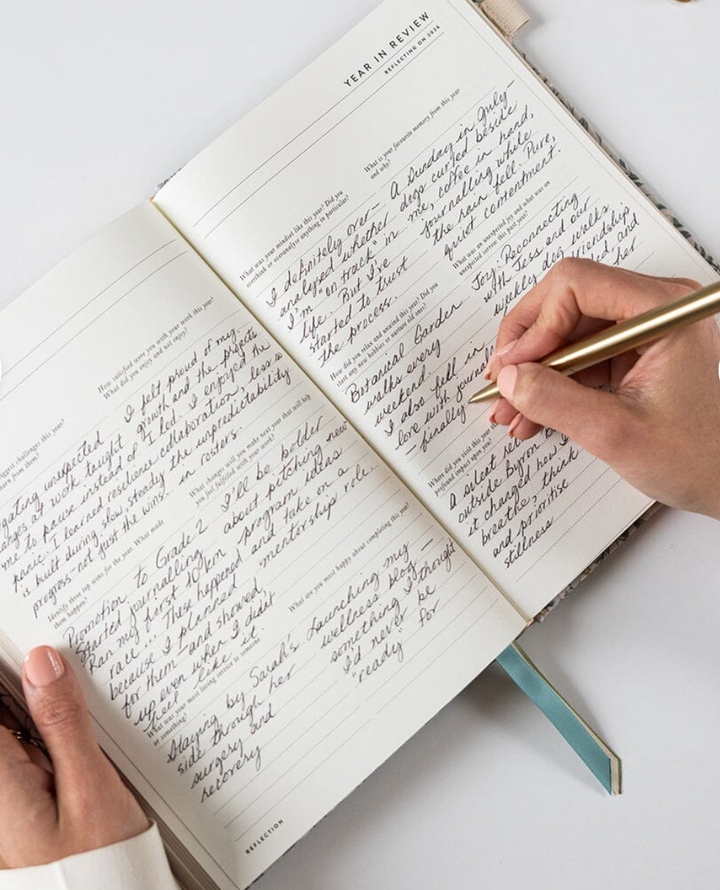 How satisfied were you with your work this year?
What did you enjoy and not enjoy?
I felt proud of my
growth and the projects
I led. I enjoyed the
collaboration, less so
the unpredictability
in rosters.
biggest challenges this year?
learn from them?
unexpected
at work taught
me to pause instead of
panic. I learned resilience
is built during slow, steady
progress—not just the wins.
What changes will you make next year that will help
you feel fulfilled with your work?
I'll be bolder
about pitching new
program ideas
and take on a
mentorship role.
Identify three top wins for the year. What made
them happen?
Promotion to Grade 2
Started journalling
Ran my first 10km
race. These happened
because I planned
for them and showed
up even when I didn't
feel like it.
What are you most happy about completing this year?
Launching my
wellness blog —
something I thought
I'd never be
"ready" for
What was your most loving service to someone
or something?
Staying by Sarah's
side through her
surgery and
recovery
REFLECTION
YEAR IN REVIEW
REFLECTING ON 2026
What was your mindset like this year? Did you
overthink or overanalyse anything in particular?
I definitely over-
analysed whether
I'm "on track" in
life. But I've
started to trust
the process.
What is your favourite memory from this year
and why?
A Sunday in July—
dogs curled beside
me, coffee in hand,
journalling while
the rain fell. Pure,
quiet contentment.
How did you relax and unwind this year? Did you
start any new hobbies or nurture old ones?
Botanical Garden
walks every
weekend.
I also fell in
love with journalli
—finally
What was an unexpected joy and what was an
unexpected sorrow this past year?
Joy: Reconnecting
with Jess and our
weekly dog walks.
friendship
and
her
Where did you visit this
profound impact upon you?
A silent re
outside Byron B
it changed how I
breathe, think
and prioritise
stillness